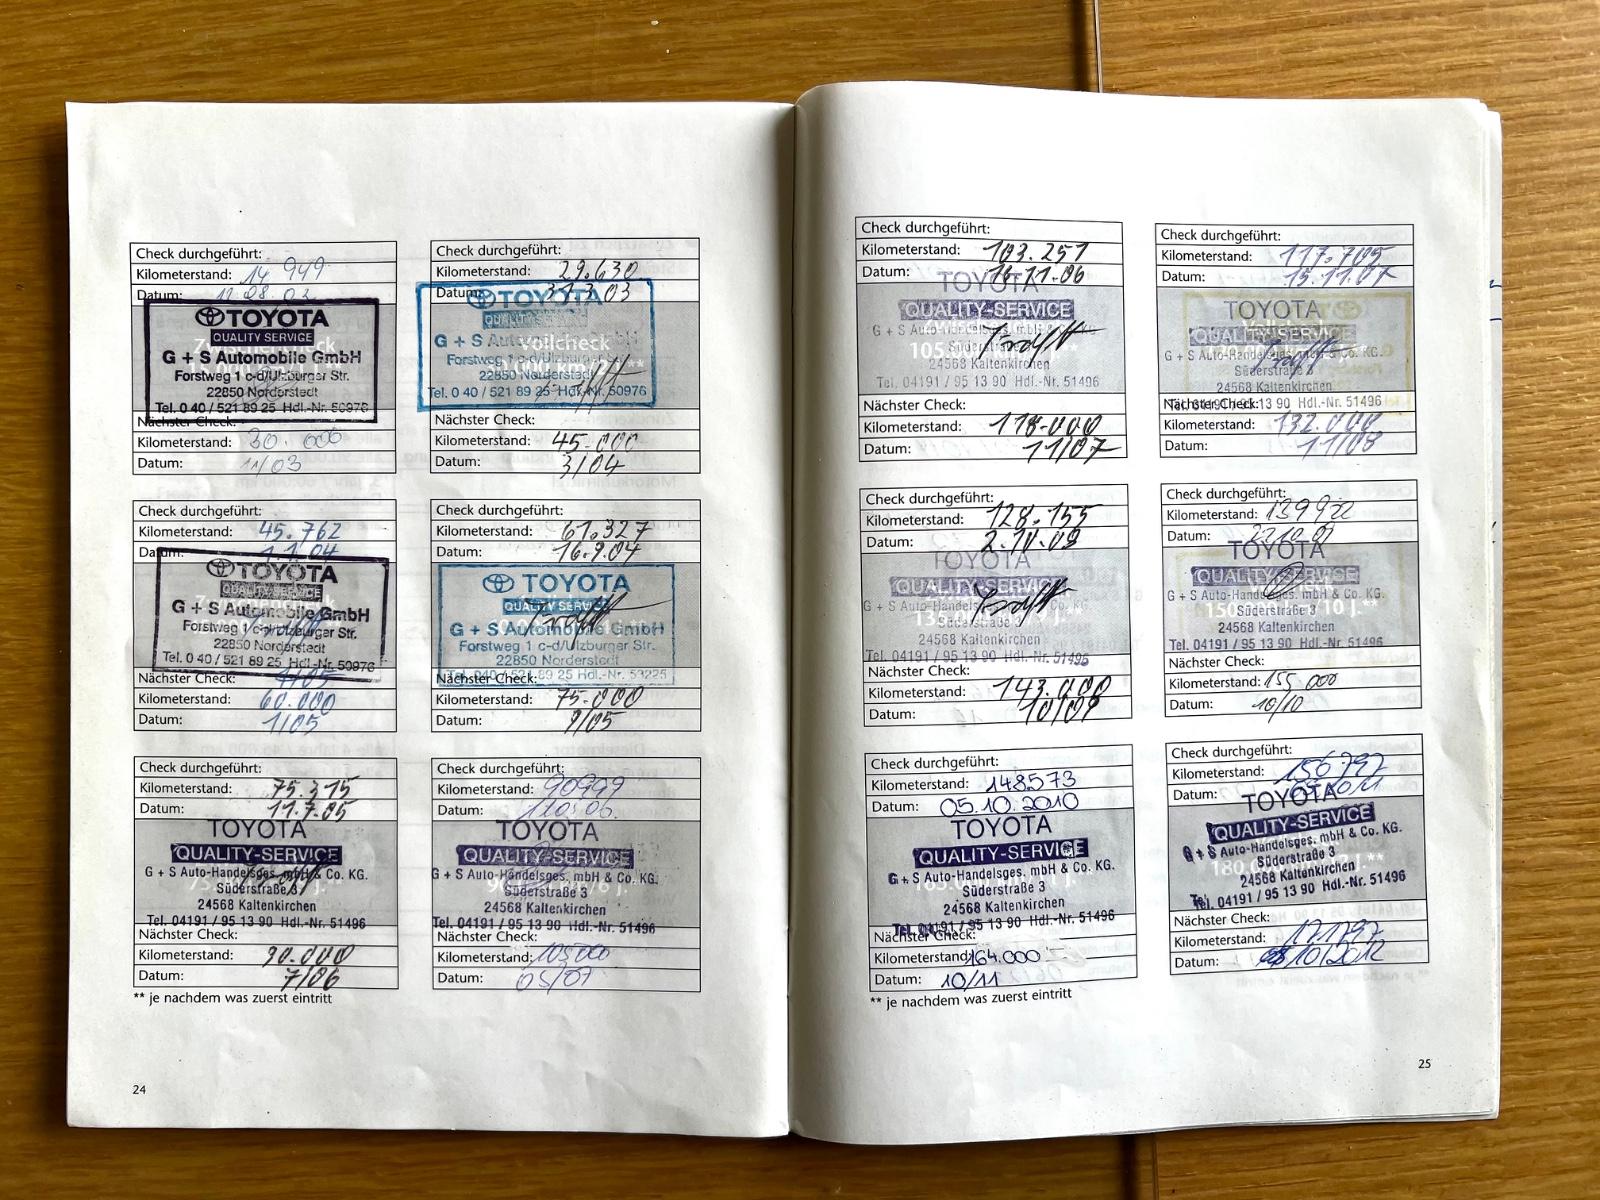 Check durchgeführt:
Kilometerstand: 14 949
Datum:
TOYOTA
QUALITY SERVICE
G + S Automobile GmbH
Forstweg 1 c-d/Ulzburger Str.
22850 Norderstedt
Tel. 0 40 / 521 89 25 Hdl.-Nr. 50976
Nächster Check:
Kilometerstand: 30.000
Datum: 11/03
Check durchgeführt:
Kilometerstand: 29.630
Datum: 31.3.03
TOYOTA
QUALITY SERVICE
G + S Automobile GmbH
Vollcheck
Forstweg 1 c-d/Ulzburger Str.
22850 Norderstedt
Tel. 0 40 / 521 89 25 Hdl.-Nr. 50976
Nächster Check:
Kilometerstand: 45.000
Datum: 3/04
Check durchgeführt:
Kilometerstand: 45.762
Datum: 1.1.04
TOYOTA
QUALITY SERVICE
G + S Automobile GmbH
Forstweg 1 c-d/Ulzburger Str.
22850 Norderstedt
Tel. 0 40 / 521 89 25 Hdl.-Nr. 50976
Nächster Check:
Kilometerstand: 60.000
Datum: 1/05
Check durchgeführt:
Kilometerstand: 61.327
Datum: 16.9.04
TOYOTA
QUALITY SERVICE
G + S Automobile GmbH
Forstweg 1 c-d/Ulzburger Str.
22850 Norderstedt
Tel. 040 / 521 89 25 Hdl.-Nr. 53225
Nächster Check:
Kilometerstand: 75.000
Datum: 9/05
Check durchgeführt:
Kilometerstand: 75.315
Datum: 11.7.05
TOYOTA
QUALITY-SERVICE
G + S Auto-Handelsges. mbH & Co. KG.
Süderstraße 3
24568 Kaltenkirchen
Tel. 04191 / 95 13 90 Hdl.-Nr. 51496
Nächster Check:
Kilometerstand: 90.000
Datum: 7/06
Check durchgeführt:
Kilometerstand: 90999
Datum:
TOYOTA
QUALITY-SERVICE
G + S Auto-Handelsges. mbH & Co. KG.
Süderstraße 3
24568 Kaltenkirchen
Tel. 04191 / 95 13 90 Hdl.-Nr. 51496
Nächster Check:
Kilometerstand: 105000
Datum: 05/07
** je nachdem was zuerst eintritt
24
Check durchgeführt:
Kilometerstand: 103.251
Datum: 16.11.06
TOYOTA
QUALITY-SERVICE
G + S Auto-Handelsges. mbH & Co. KG.
Süderstraße 3
24568 Kaltenkirchen
Tel. 04191 / 95 13 90 Hdl.-Nr. 51496
Nächster Check:
Kilometerstand: 118.000
Datum: 11/07
Check durchgeführt:
Kilometerstand: 117.705
Datum: 15.11.07
TOYOTA
QUALITY-SERVICE
G + S Auto-Handelsges. mbH & Co. KG.
Süderstraße 3
24568 Kaltenkirchen
Tel. 04191 / 95 13 90 Hdl.-Nr. 51496
Nächster Check:
Kilometerstand: 132.000
Datum: 11/08
Check durchgeführt:
Kilometerstand: 128.155
Datum: 2.10.08
TOYOTA
QUALITY-SERVICE
G + S Auto-Handelsges. mbH & Co. KG.
Süderstraße 3
24568 Kaltenkirchen
Tel. 04191 / 95 13 90 Hdl.-Nr. 51496
Nächster Check:
Kilometerstand: 143.000
Datum: 10/09
Check durchgeführt:
Kilometerstand:
Datum: 22.10.09
TOYOTA
QUALITY-SERVICE
G + S Auto-Handelsges. mbH & Co. KG.
Süderstraße 3
24568 Kaltenkirchen
Tel. 04191 / 95 13 90 Hdl.-Nr. 51496
Nächster Check:
Kilometerstand: 155 000
Datum: 10/10
Check durchgeführt:
Kilometerstand: 148573
Datum: 05.10.2010
TOYOTA
QUALITY-SERVICE
G + S Auto-Handelsges. mbH & Co. KG.
Süderstraße 3
24568 Kaltenkirchen
Tel. 04191 / 95 13 90 Hdl.-Nr. 51496
Nächster Check:
Kilometerstand: 164.000
Datum: 10/11
Check durchgeführt:
Kilometerstand: 156797
Datum:
TOYOTA
QUALITY-SERVICE
G + S Auto-Handelsges. mbH & Co. KG.
Süderstraße 3
24568 Kaltenkirchen
Tel. 04191 / 95 13 90 Hdl.-Nr. 51496
Nächster Check:
Kilometerstand: 171797
Datum: 10/2012
** je nachdem was zuerst eintritt
25